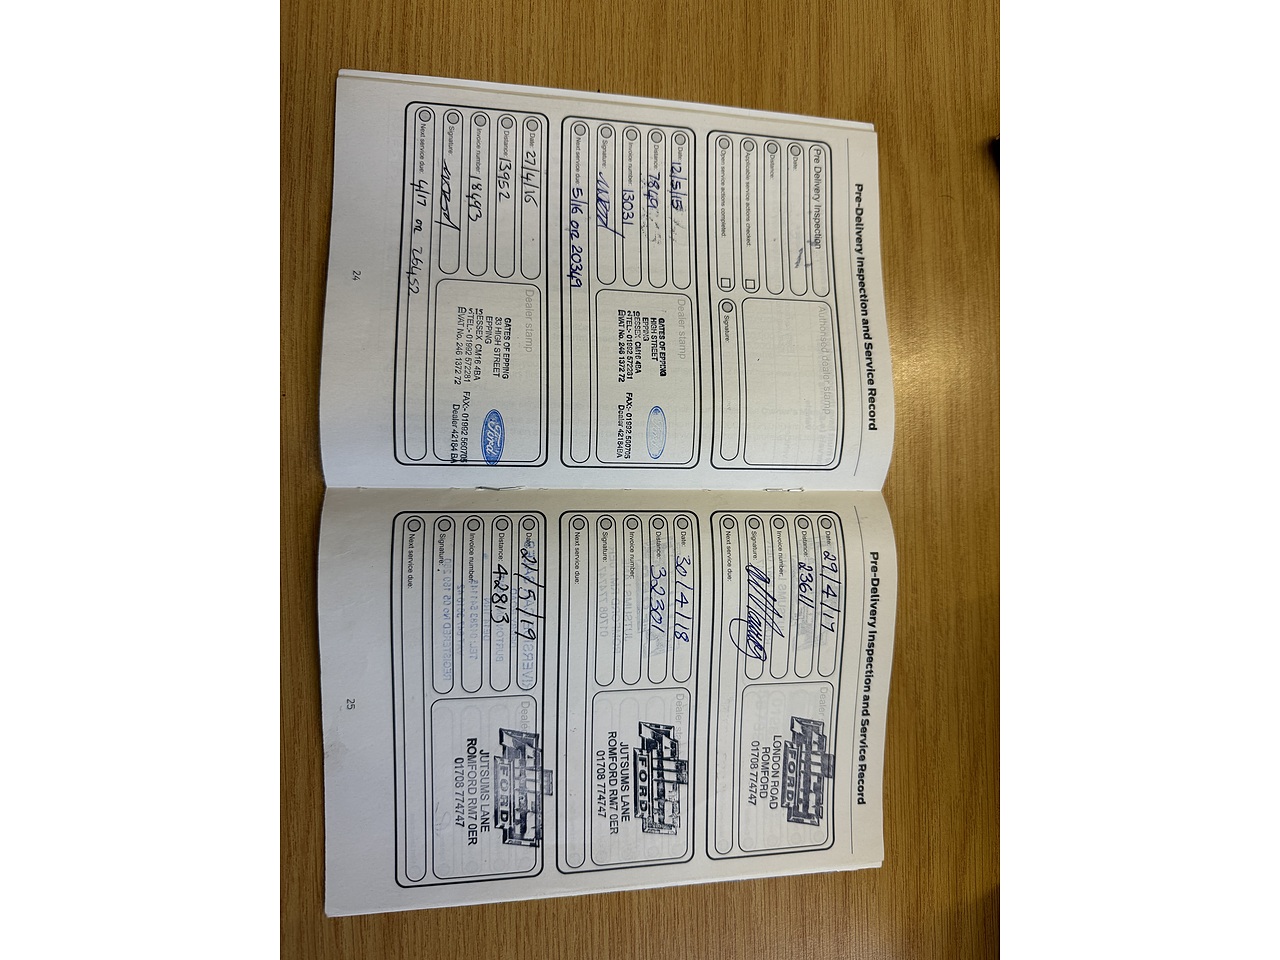 Pre-Delivery Inspection and Service Record
Pre Delivery Inspection
Date:
Distance:
Applicable service actions checked:
Open service actions completed:
Authorised dealer stamp
Signature:
Date: 12/5/15
Distance: 7849
Invoice number: 13031
Signature:
Next service due: 5/16 OR 20349
Dealer stamp
GATES OF EPPING
HIGH STREET
EPPING
ESSEX CM16 4BA
TEL:- 01992 572281 FAX:- 01992 560705
VAT No. 246 1372 72 Dealer 42184BA
Date: 27/4/16
Distance: 13952
Invoice number: 18493
Signature:
Next service due: 4/17 OR 26452
Dealer stamp
GATES OF EPPING
33 HIGH STREET
EPPING
ESSEX CM16 4BA
TEL:- 01992 572281 FAX:- 01992 560705
VAT No. 246 1372 72 Dealer 42184 BA
Ford
24
Pre-Delivery Inspection and Service Record
Date: 29/4/17
Distance: 23611
Invoice number:
Signature:
Next service due:
Dealer
FORD
LONDON ROAD
ROMFORD
01708 774747
Date: 30/4/18
Distance: 32301
Invoice number:
Signature:
Next service due:
Dealer
FORD
JUTSUMS LANE
ROMFORD RM7 0ER
01708 774747
Date: 21/5/19
Distance: 42813
Invoice number:
Signature:
Next service due:
Dealer
FORD
JUTSUMS LANE
ROMFORD RM7 0ER
01708 774747
25